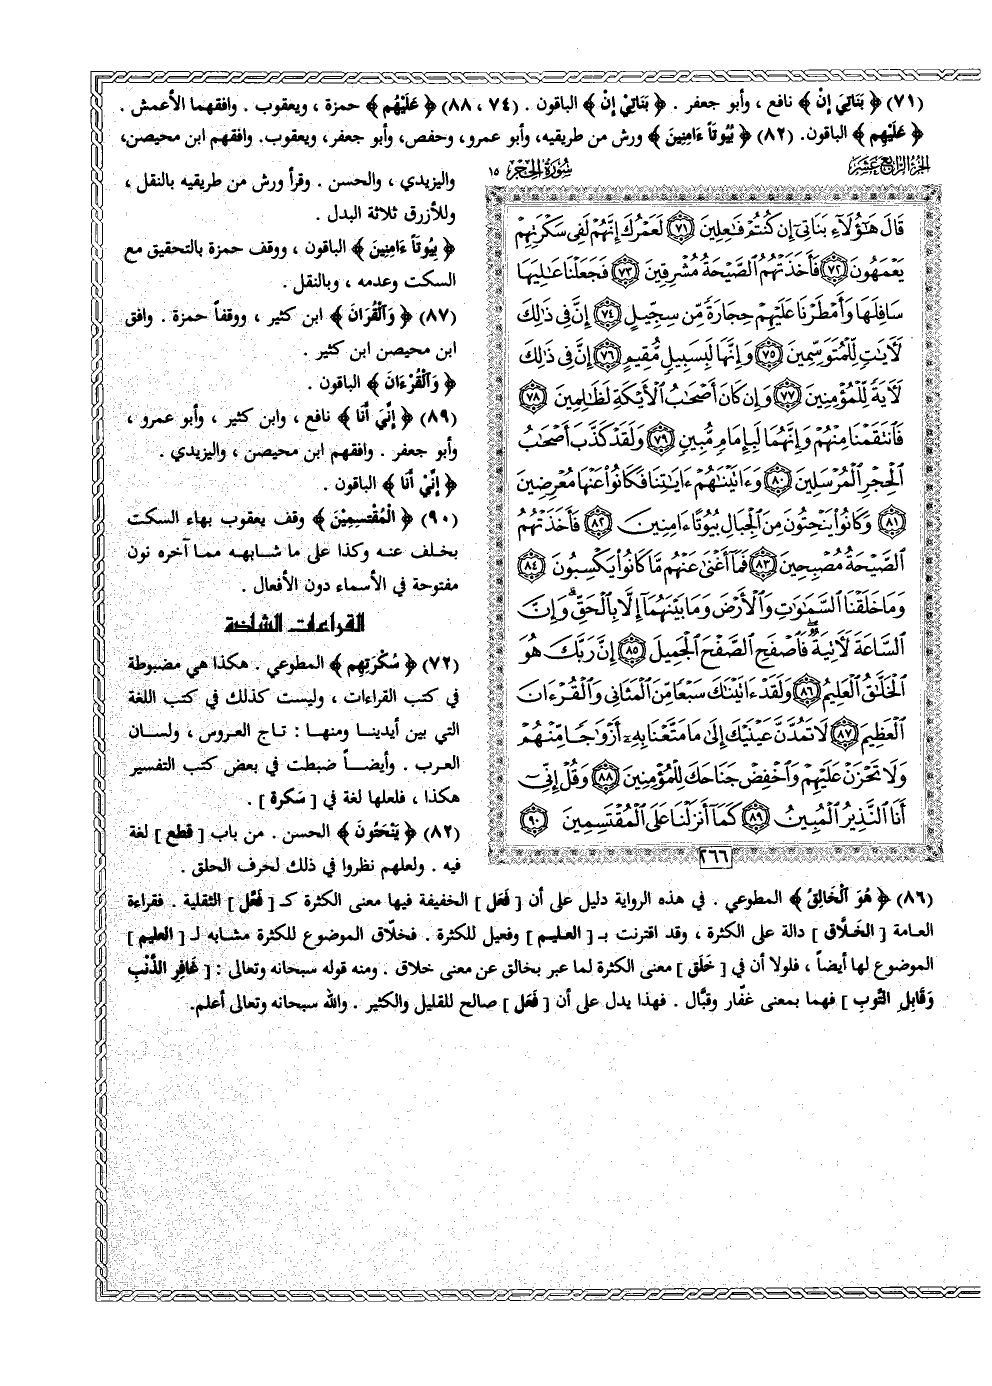 (٧١) ﴿ بَنَاتِيَ إِنْ ﴾ نافع ، وأبو جعفر . ﴿ بَنَاتِيْ إِنْ ﴾ الباقون . (٧٤ ، ٨٨) ﴿ عَلَيْهُم ﴾ حمزة ، ويعقوب . وافقهما الأعمش .
﴿ عَلَيْهِم ﴾ الباقون. (٨٢) ﴿ بُيُوتاً ءَامِنِينَ ﴾ ورش من طريقيه، وأبو عمرو، وحفص، وأبو جعفر، ويعقوب. وافقهم ابن محيصن،
الجزء الرابع عشر
سورة الحجر ١٥
قَالَ هَٰٓؤُلَآءِ بَنَاتِىٓ إِن كُنتُمْ فَٰعِلِينَ ٧١ لَعَمْرُكَ إِنَّهُمْ لَفِى سَكْرَتِهِمْ
يَعْمَهُونَ ٧٢ فَأَخَذَتْهُمُ ٱلصَّيْحَةُ مُشْرِقِينَ ٧٣ فَجَعَلْنَا عَٰلِيَهَا
سَافِلَهَا وَأَمْطَرْنَا عَلَيْهِمْ حِجَارَةً مِّن سِجِّيلٍ ٧٤ إِنَّ فِى ذَٰلِكَ
لَءَايَٰتٍ لِّلْمُتَوَسِّمِينَ ٧٥ وَإِنَّهَا لَبِسَبِيلٍ مُّقِيمٍ ٧٦ إِنَّ فِى ذَٰلِكَ
لَءَايَةً لِّلْمُؤْمِنِينَ ٧٧ وَإِن كَانَ أَصْحَٰبُ ٱلْأَيْكَةِ لَظَٰلِمِينَ ٧٨
فَٱنتَقَمْنَا مِنْهُمْ وَإِنَّهُمَا لَبِإِمَامٍ مُّبِينٍ ٧٩ وَلَقَدْ كَذَّبَ أَصْحَٰبُ
ٱلْحِجْرِ ٱلْمُرْسَلِينَ ٨٠ وَءَاتَيْنَٰهُمْ ءَايَٰتِنَا فَكَانُوا۟ عَنْهَا مُعْرِضِينَ
٨١ وَكَانُوا۟ يَنْحِتُونَ مِنَ ٱلْجِبَالِ بُيُوتًا ءَامِنِينَ ٨٢ فَأَخَذَتْهُمُ
ٱلصَّيْحَةُ مُصْبِحِينَ ٨٣ فَمَآ أَغْنَىٰ عَنْهُم مَّا كَانُوا۟ يَكْسِبُونَ ٨٤
وَمَا خَلَقْنَا ٱلسَّمَٰوَٰتِ وَٱلْأَرْضَ وَمَا بَيْنَهُمَآ إِلَّا بِٱلْحَقِّ ۗ وَإِنَّ
ٱلسَّاعَةَ لَءَاتِيَةٌ ۖ فَٱصْفَحِ ٱلصَّفْحَ ٱلْجَمِيلَ ٨٥ إِنَّ رَبَّكَ هُوَ
ٱلْخَلَّٰقُ ٱلْعَلِيمُ ٨٦ وَلَقَدْ ءَاتَيْنَٰكَ سَبْعًا مِّنَ ٱلْمَثَانِى وَٱلْقُرْءَانَ
ٱلْعَظِيمَ ٨٧ لَا تَمُدَّنَّ عَيْنَيْكَ إِلَىٰ مَا مَتَّعْنَا بِهِۦٓ أَزْوَٰجًا مِّنْهُمْ
وَلَا تَحْزَنْ عَلَيْهِمْ وَٱخْفِضْ جَنَاحَكَ لِلْمُؤْمِنِينَ ٨٨ وَقُلْ إِنِّىٓ
أَنَا ٱلنَّذِيرُ ٱلْمُبِينُ ٨٩ كَمَآ أَنزَلْنَا عَلَى ٱلْمُقْتَسِمِينَ ٩٠
٢٦٦
واليزيدي ، والحسن . وقرأ ورش من طريقيه بالنقل ،
وللأزرق ثلاثة البدل .
﴿ بِيُوتاً ءَامِنِينَ ﴾ الباقون ، ووقف حمزة بالتحقيق مع
السكت وعدمه ، وبالنقل .
(٨٧) ﴿ وَٱلْقُرَانَ ﴾ ابن كثير ، ووقفاً حمزة . وافق
ابن محيصن ابن كثير .
﴿ وَٱلْقُرْءَانَ ﴾ الباقون .
(٨٩) ﴿ إِنِّيَ أَنَا ﴾ نافع ، وابن كثير ، وأبو عمرو ،
وأبو جعفر . وافقهم ابن محيصن ، واليزيدي .
﴿ إِنِّيْ أَنَا ﴾ الباقون .
(٩٠) ﴿ الْمُقْتَسِمِيْنَ ﴾ وقف يعقوب بهاء السكت
بخلف عنه وكذا على ما شابهه مما آخره نون
مفتوحة في الأسماء دون الأفعال .
القراءات الشاذة
(٧٢) ﴿ سُكْرَتِهِم ﴾ المطوعي . هكذا هي مضبوطة
في كتب القراءات ، وليست كذلك في كتب اللغة
التي بين أيدينا ومنها : تاج العروس ، ولسان
العرب . وأيضاً ضبطت في بعض كتب التفسير
هكذا ، فلعلها لغة في [ سَكرة ] .
(٨٢) ﴿ يَنْحَتُونَ ﴾ الحسن . من باب [ قطع ] لغة
فيه . ولعلهم نظروا في ذلك لحرف الحلق .
(٨٦) ﴿ هُوَ ٱلْخَالِقُ ﴾ المطوعي . في هذه الرواية دليل على أن [ فَعَل ] الخفيفة فيها معنى الكثرة كـ [ فَعَّل ] الثقيلة . فقراءة
العامة [ الخَلّاق ] دالة على الكثرة ، وقد اقترنت بـ [ العليم ] وفعيل للكثرة . فخلّاق الموضوع للكثرة مشابه لـ [ العليم ]
الموضوع لها أيضاً ، فلولا أن في [ خَلَق ] معنى الكثرة لما عبر بخالق عن معنى خلاق . ومنه قوله سبحانه وتعالى : [ غَافِرِ الذَّنْبِ
وَقَابِلِ التَّوبِ ] فهما بمعنى غفّار وقبَّال . فهذا يدل على أن [ فَعَل ] صالح للقليل والكثير . والله سبحانه وتعالى أعلم.